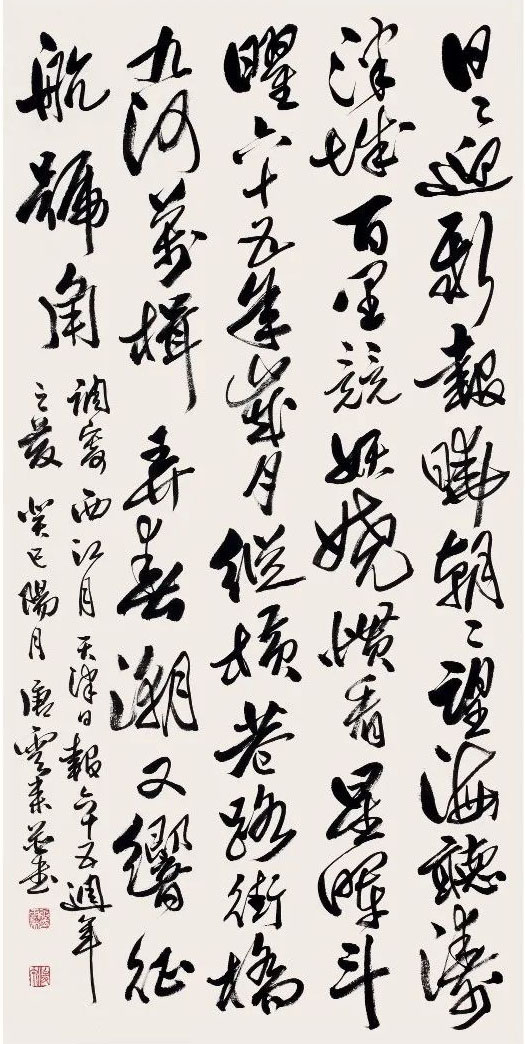 日〻迎新報曉朝〻望海聽濤
津城百里競妖嬈慣看星暉斗
曜六十五年歲月縱橫巷路街橋
九河萬楫弄春潮又響征
航號角
調寄西江月天津日報六十五週年
之慶癸巳陽月唐雲來並書